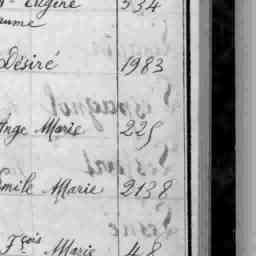 Eugène 534
aume
Désiré 1983
Ange Marie 225
Emile Marie 2138
Fçois Marie 48